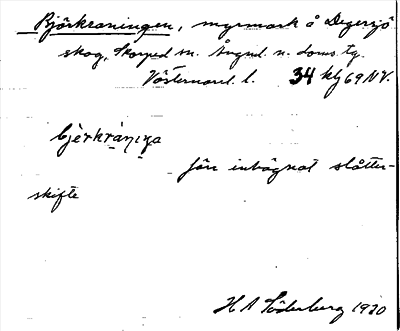 Björkraningen, myrmark å Degersjö
skog, Skorped sn. Ångml. n. doms. tg.
Västernorrl. l. 34 klg 69 NV.
bjèrkràniŋa
förr inhägnat slåtter-
skifte
H A Söderberg 1920